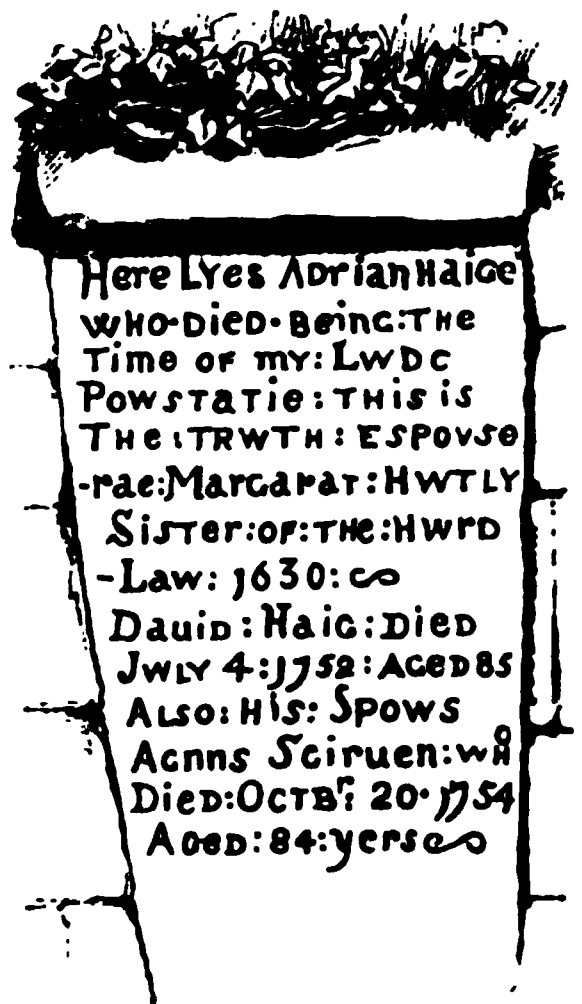 Here Lyes Adrian Haige
who·Died·Being:the
Time of my: Lwdc
Powstatie: this is
The:trwth: Espovse
-rae:Margarat:Hwtly
Sister:of:the:Hwrd
-Law: 1630:
Dauid: Haig: Died
Jwly 4:1752: Aged 85
Also: His: Spows
Agnns Sciruen: who
Died:Octbr: 20·1754
Aged: 84: yers